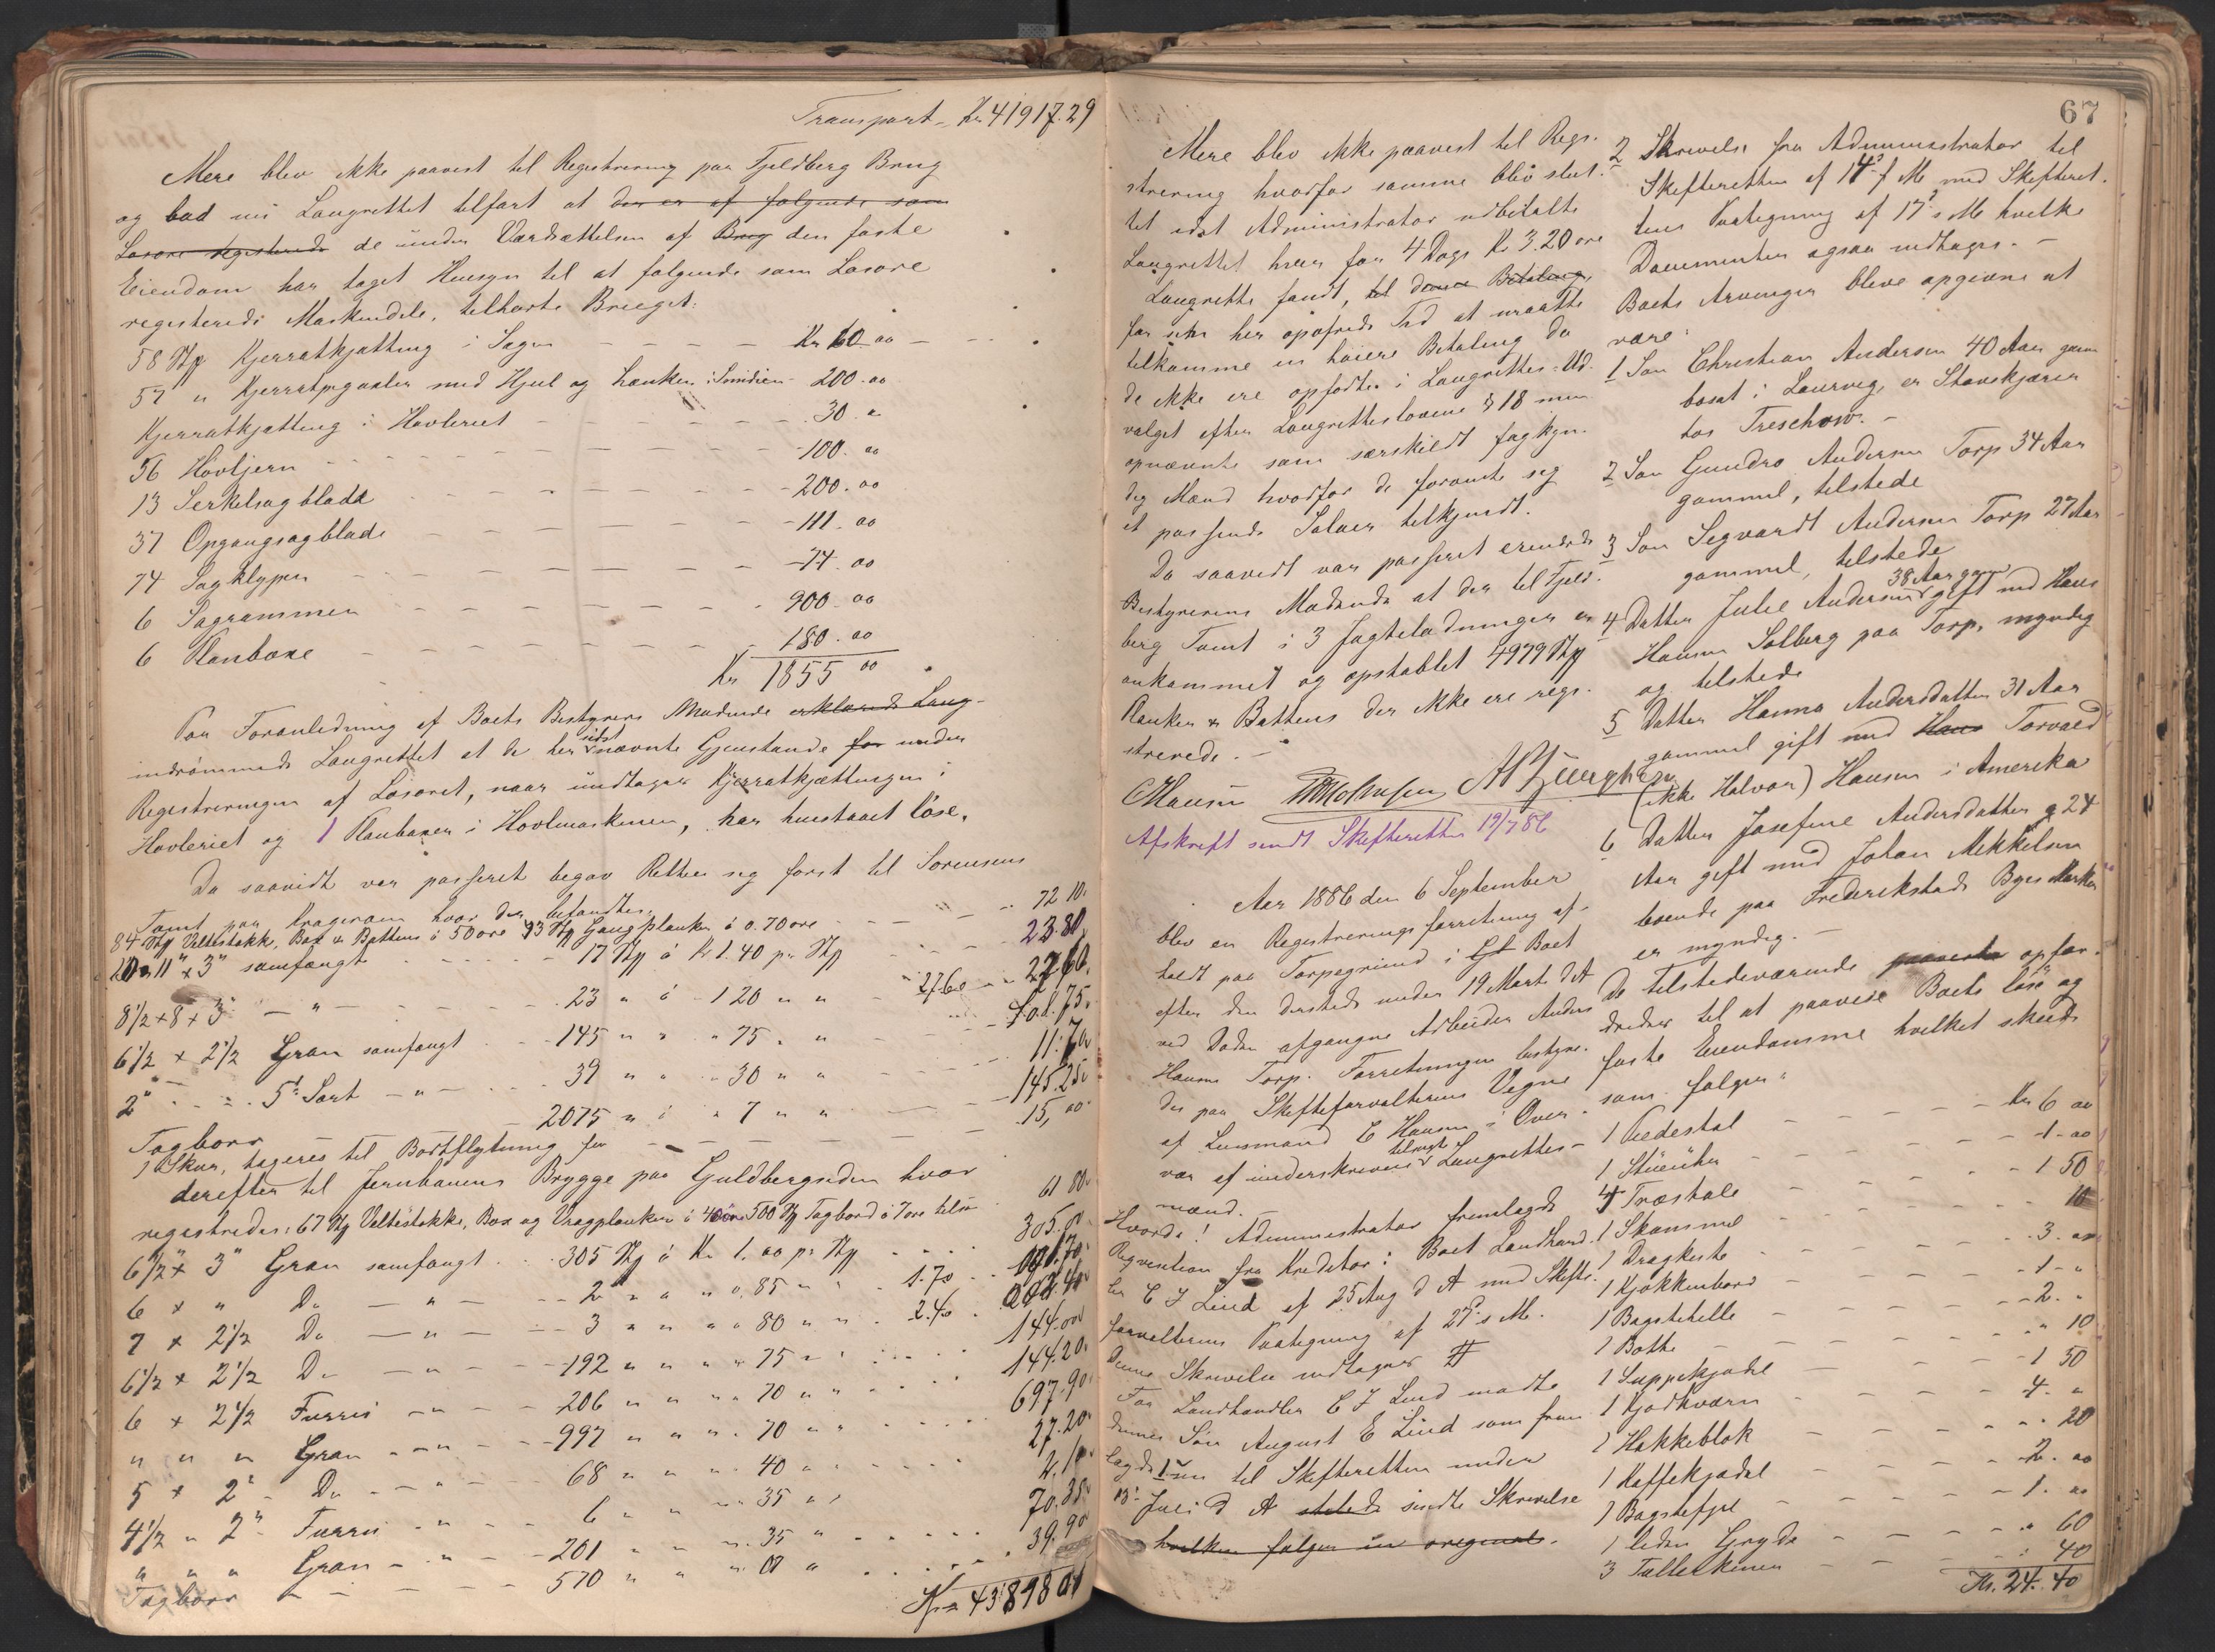 Transport - Kr 41917.29
Mere blev ikke paavist til Registrering paa Fjeldberg Brug
og bad nu Laugrettet tilført at der er af følgende som
Løsøre registerede de under Værdsættelsen af Brug den faste
Eiendom har taget Hensyn til at følgende som Løsøre
registerede Maskindele, tilhørte Bruget:
58 Stk Kjerratkjætting i Sagen - - - Kr 60.00
57 " Kjerrat med Hjul og Lænker i Smidien - 200.00
Kjerratkjætting i Høvleriet - - - 30. "
56 Høvljern - - - 100. 00
13 Serkelsagblade - - - 200. 00
37 Opgangsagblade - - - 111. 00
74 Sagklyper - - - 74. 00
6 Sagrammer - - - 900. 00
6 Vanboxe - - - 180. 00
Kr 1855 00
Paa Foranledning af Boets Bestyrers Mødende erklærede Laug-
indrømmede Laugrettet at de her sidst nævnte Gjenstande for under
Registreringen af Løsøret, naar undtages Kjerratkjættingen i
Høvleriet og 1 i Hovlmaskinen, har henstaaet løse.
Da saavidt var passeret begav Retten sig først til Sørensens
Tomt paa Krageraaen hvor der befandtes:
84 Stk Veltestokk, Box & Battens à 50 øre 43 Stk Gangplanker à 0.70 øre - - 72 10.
11" x 3" samfængt - - - 17 Stk à Kr 1.40 pr Stk - - - 23.80
8 1/2 x 8 x 3" - " - - - 23 " à - 1 20 " " - 27.60 - 27.60.
6 1/2 x 2 1/2 Gran samfængt - - 145 " " " 75. " - - 108.75.
2" - - - 5' Sort - " - - - 39 " " - 30 " " - - 11.70
Tagbord - - - 2075 " à " 7 " " - - 145.25.
1 Skur, tageres til Bortflytning for - - - 15,00
derefter til Jernbanens Brygge paa Guldbergsiden hvor
registredes: 67 Stk Veltestokke, Box og Vragplanker à 40 øre 500 Stk Tagbord à 7 øre tils. 61 80.
6 1/2 x 3" Gran samfængt - - 305 Stk à Kr 1.00 pr Stk - - 305.00
6 x " Do - " - - - 2 " " " 0.85 " " - 1.70 - - 1.70.
7 x 2 1/2 Do - " - - - 3 " " " " 80 " " - 2.40 - 2.40
6 1/2 x 2 1/2 Do - " - - 192 " " " " 75 " - - - 144.00
6 x 2 1/2 Furru - " - - 206 " " " " 70 " " - - 144.20.
" " " Gran - " - - 997 " " " " 70 " " - - 697.90.
5 x 2" - Do - - " - - 68 " " " " 40 " - - - 27.20.
4 1/2 " 2" Furru - " - - 6 " " " " 35 " " - - 2.10.
" " " Gran - " - - 201 " " " " 35 " - - 70.35.
Tagbord - - - 570 " " " 07 " - - - 39.90
Kr 43898 01
67
Mere blev ikke paavist til Regi-
strering hvorfor samme blev slut-
tet idet Administrator udbetalte
Laugrettet hver for 4 Dage Kr 3.20 øre
Laugrette fandt, til denne Betaling
for den her opofrede Tid at maatte
tilkomme en høiere Betaling da
de ikke ere opførte i Laugrettes-Ud-
valget efter Laugretteslovens § 18 men
opnævnte som særskildt fagkyn-
dig Mænd hvorfor de foreente sig
et passende Salær tilkjendt.
Da saavidt var passeret erindrede
Bestyrerens Mødende at der til Fjeld-
berg Tomt i 3 Jagteladninger er
ankommet og opstablet 4979 Stk
Planker & Battens der ikke ere regi-
strerede. -
C Hansen
Afskrift sendt Skifteretten 19/7 86
Aar 1886 den 6 September
blev en Registreringsforretning af-
holdt paa Torpegrund i Gl Boet
efter den dersteds under 19 Marts d A
ved Døden afgangne Arbeider Anders
Hansen Torp. Forretningen bestyre-
des paa Skifteforvalterens Vegne
af Lensmand C Hansen i Over-
vær af underskrevne tilnagte Laugrettes-
mænd.
Hvorda! Administrator fremlagde
Reqvisition fra Kreditor i Boet Landhand-
ler C J Lind af 25 Aug d A med Skifte-
forvalterens Paategning af 27 s M.
Denne Skrivelse indtages #
For Landhandler C J Lind mødte
dennes Søn August E Lind som frem-
lagde 1 en til Skifteretten under
13 Juli d A sendte Skrivelse
hvilken følger in original.
2 Skrivelse fra Administrator til
Skifteretten af 14 f M med Skifteret-
tens Paategning af 17 s M hvilke
Documenter ogsaa indtages. -
Boets Arvinger bleve opgivne at
være:
1 Søn Christian Andersen 40 Aar gam
bosat i Laurvig, er Stavskjærer
hos Treschow. -
2 Søn Gundro Andersen Torp 34 Aar
gammel, tilstede
3 Søn Segvardt Andersen Torp 27 Aar
gammel, tilstede
4 Datter Julie Andersen 38 Aar gam gift med Hans
Hansen Solberg paa Torp, myndig
og tilstede
5 Datter Hanna Andersdatter 31 Aar
gammel gift med Hans Torvald
(ikke Halvor) Hansen i Amerika
6 Datter Josefine Andersdatter g 24
Aar gift med Johan Mekkelsen
boende paa Frederikstads Byes Marker
er myndig. -
De tilstedeværende paaviste opfor-
dredes til at paavise Boets løse og
faste Eiendomme hvilket skede
som følger:
1 Piedestal - - - Kr 6 00
1 Stueuhr - - - 1 - 00
4 Træstole - - - 1 50
1 Skammel - - - 10
1 Dragkiste - - - 3. 00
1 Kjøkkenbord - - - 1 - "
1 Bagstehelle - - - 2. "
1 Bøtte - - - " 10
1 Suppekjedel - - - 1 50
1 Kjødkværn - - - 4. "
1 Hakkeblok - - - " 20
1 Kaffekjedel - - - 2. 00
1 Bagstefjel - - - 1. 00
1 liden Gryde - - - " 60
3 Tallerkener - - - " 40
Kr. 24. 40